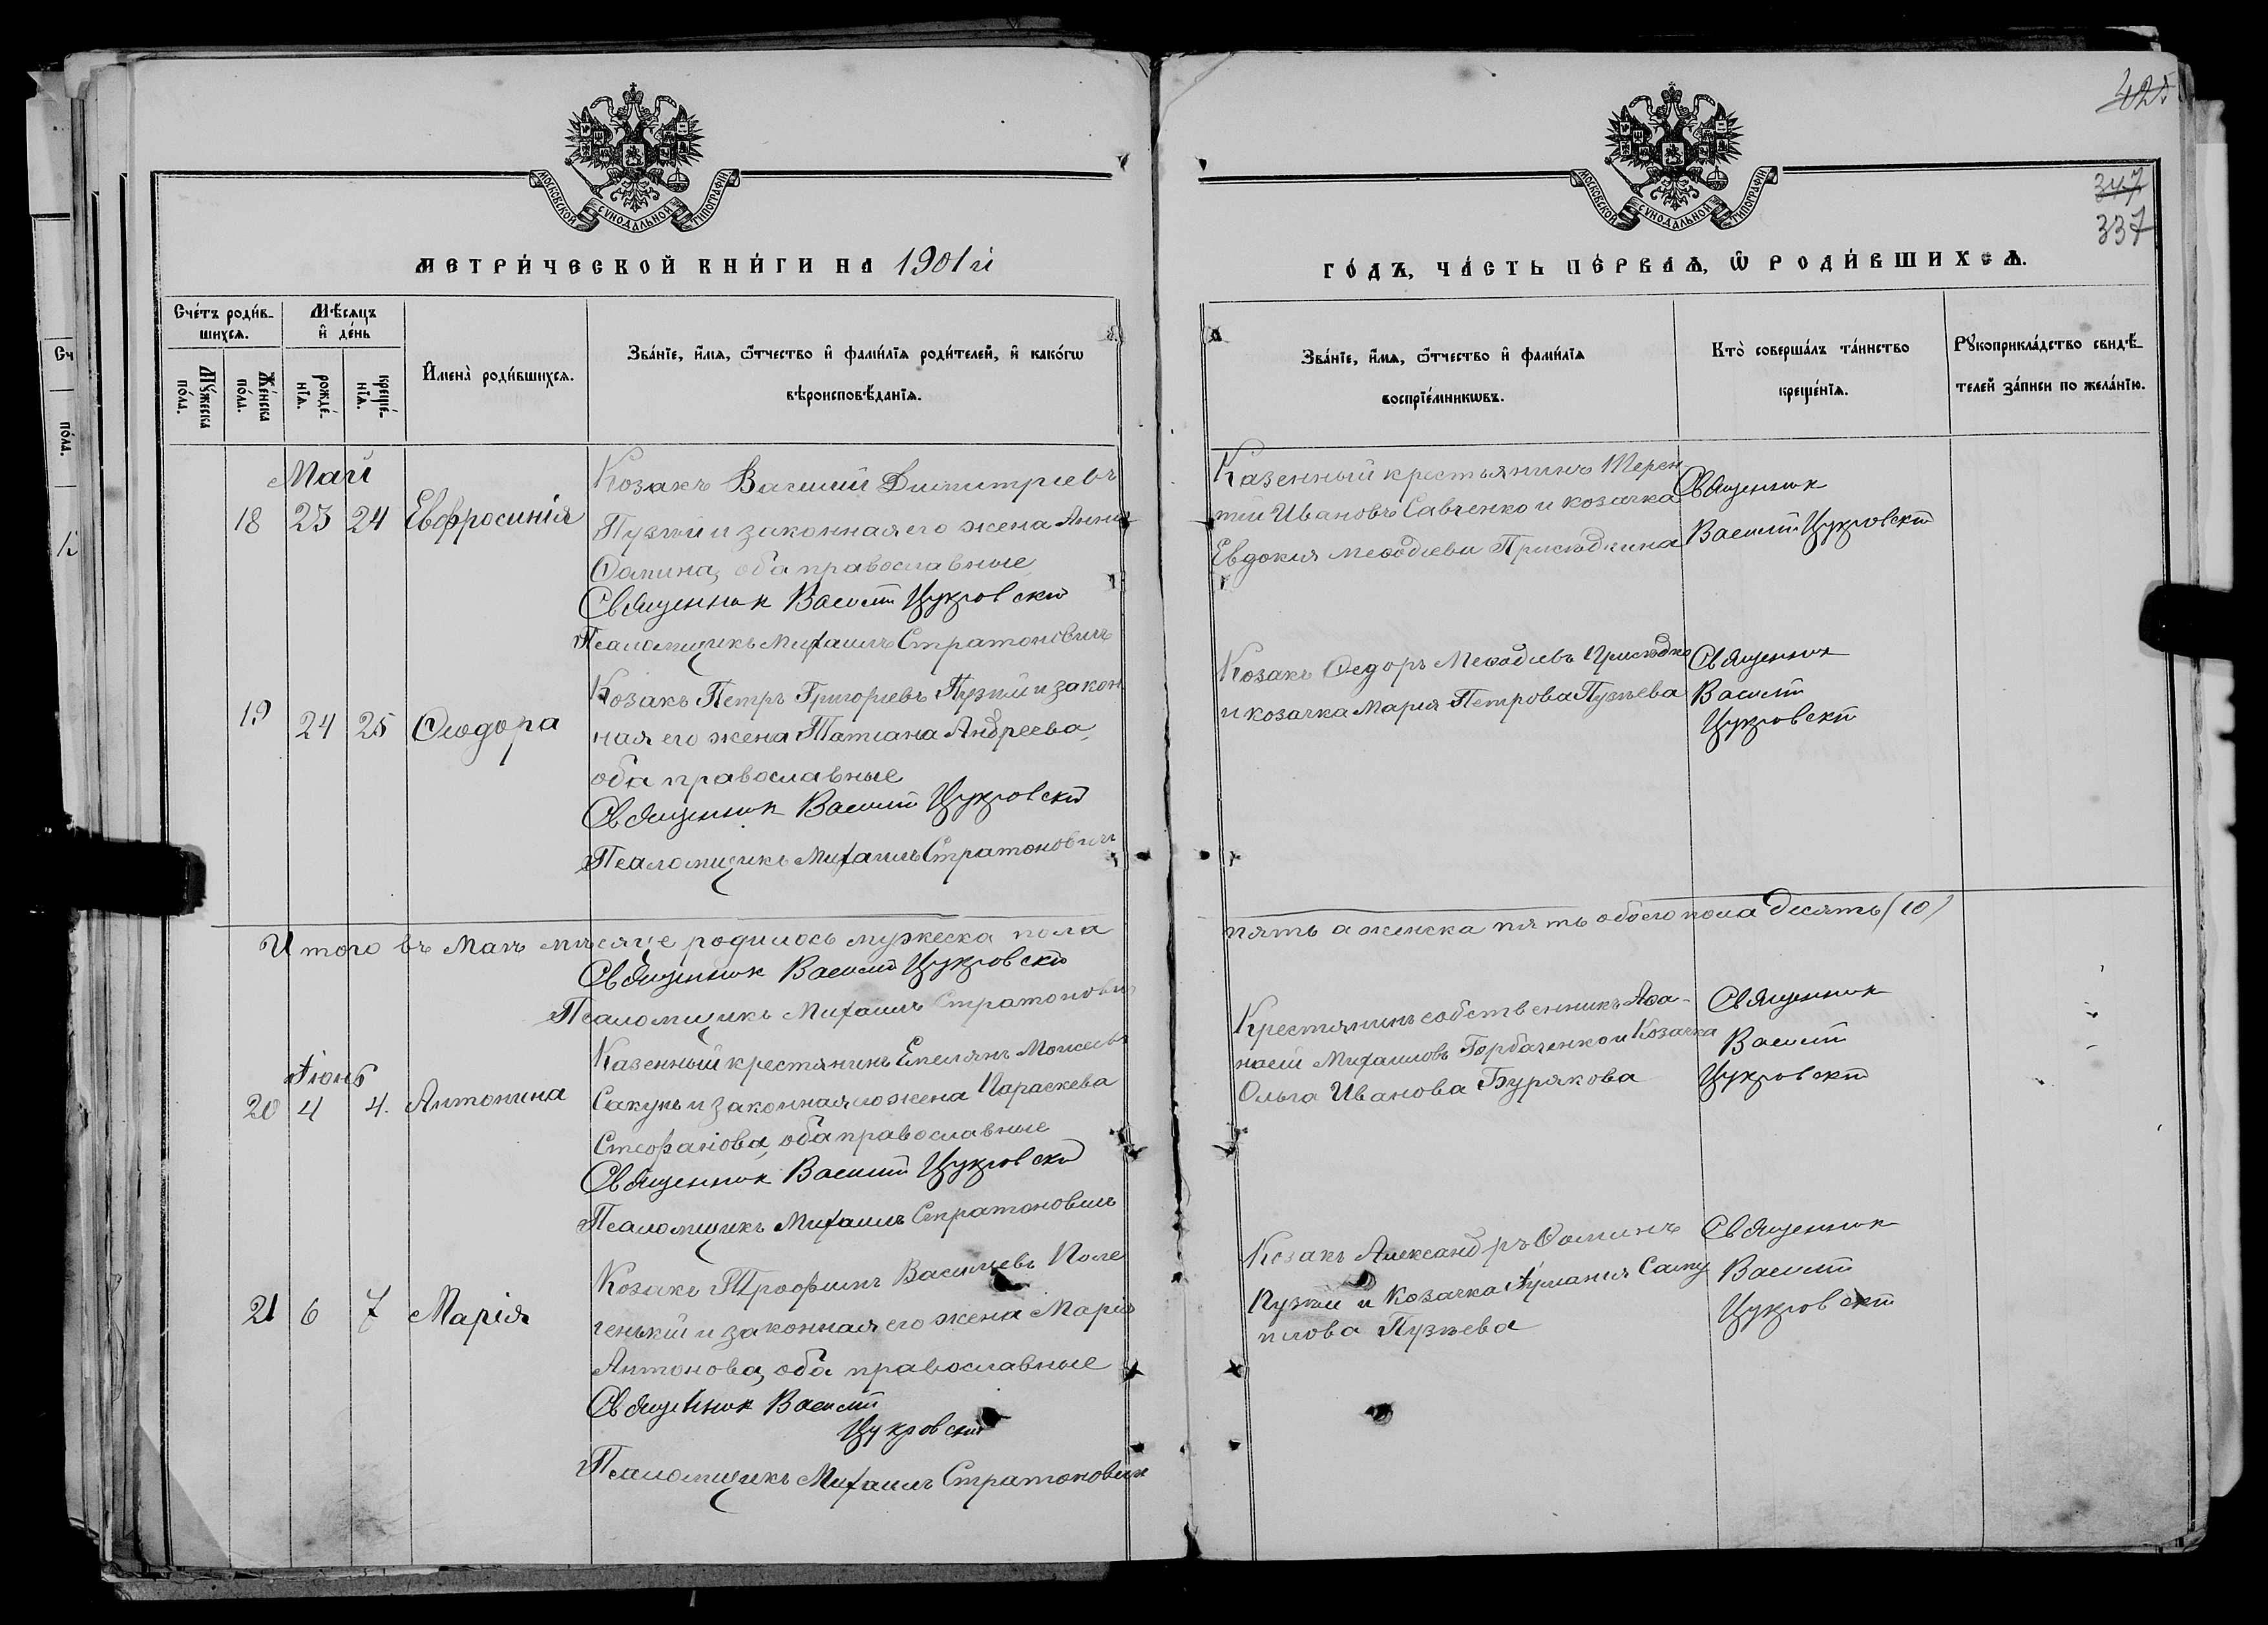 МОСКОВСКОЙ СУНОДАЛЬНОЙ ТИПОГРАФІИ
МЕТРИ́ЧЕСКОЙ КНИ́ГИ НА 1901 й
Сче́тъ роди́в-
шихсѧ.
Мѣ́сѧцъ
и҆ де́нь
Мꙋ́жеска
по́ла.
Же́нска
по́ла.
рожде́-
нїѧ.
креще́-
нїѧ.
И҆мена̀ роди́вшихсѧ.
Зва́нїе, и҆́мѧ, ѻ҆́тчество и҆ фами́лїѧ роди́телей, и҆ како́гѡ
вѣроисповѣ́данїѧ.
Май
18 23 24 Евфросинія
Козакъ Василій Димитріевъ
Пузій и законная его жена Анна
Ѳомина, оба православные
Священник Василій Цукровскій
Псаломщикъ Михаилъ Стратоновичъ
19 24 25 Ѳеодора
Козакъ Петръ Григоріевъ Пузій и закон
ная его жена Татіана Андреева,
оба православные
Священник Василій Цукровскій
Псаломщикъ Михаилъ Стратоновичъ
Итого въ Маѣ мѣсяце родилось мужеска пола
Священник Василій Цукровскій
Псаломщикъ Михаилъ Стратонович
Іюнь
20 4 4. Антонина
Казенный крестянинъ Емелянъ Моисеевъ
Сакунъ и законная его жена Параскева
Стефанова, оба православные
Священник Василій Цукровскій
Псаломщикъ Михаилъ Стратоновичъ
21 6 7 Марія
Козакъ Трофимъ Васильевъ Поле
генькій и законная его жена Марія
Антонова, оба православные
Священник Василій
Цукровскій
Псаломщикъ Михаилъ Стратоновичъ
425
МОСКОВСКОЙ СУНОДАЛЬНОЙ ТИПОГРАФІИ
347
337
ГО́ДЪ, ЧА́СТЬ ПЕ́РВАѦ, Ѡ҆ РОДИ́ВШИХСѦ.
Зва́нїе, и҆́мѧ, ѻ҆́тчество и҆ фами́лїѧ
воспрїе́мникѡвъ.
Кто̀ соверша́лъ та́инство
креще́нїѧ.
Рꙋкоприкла́дство свидѣ́-
телей за́писи по жела́нїю.
Казенный крестьянинъ Терен
тій Ивановъ Савченко и козачка
Евдокия Меѳодіева Присюдкина
Священник
Василій Цукровскій
Козакъ Ѳедоръ Меѳодіевъ Присюдко
и козачка Марія Петрова Пузіева
Священник
Василій
Цукровскій
пять а женска пять обоего пола десять (10)
Крестянинъ собственникъ Аѳа-
насій Михаиловъ Горбаченко и Козачка
Ольга Иванова Бурякова
Священник
Василій
Цукровскій
Козакъ Александръ Ѳоминъ
Пузій и Козачка Іуліанія Саму
илова Пузіева
Священник
Василій
Цукровскій